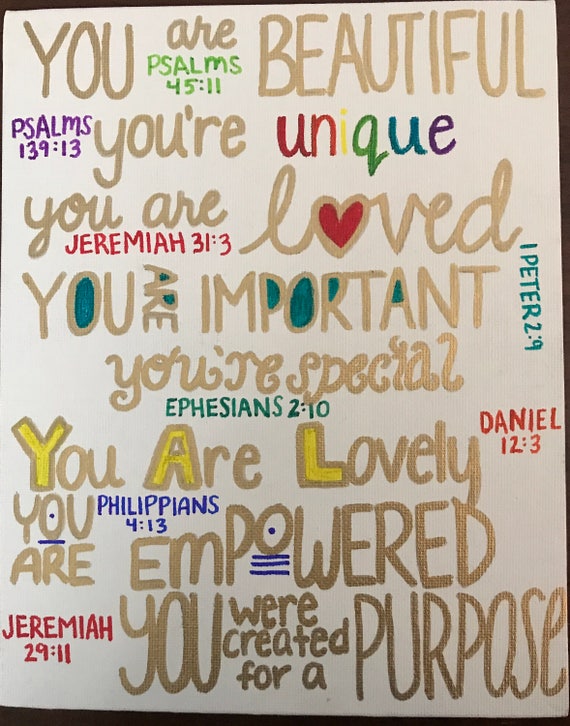 YOU are BEAUTIFUL
PSALMS
45:11
PSALMS
139:13
you're unique
you are loved
JEREMIAH 31:3
YOU ARE IMPORTANT
1 PETER 2:9
you're special
EPHESIANS 2:10
You Are Lovely
DANIEL
12:3
YOU
ARE EMPOWERED
PHILIPPIANS
4:13
JEREMIAH
29:11
YOU were
created
for a PURPOSE